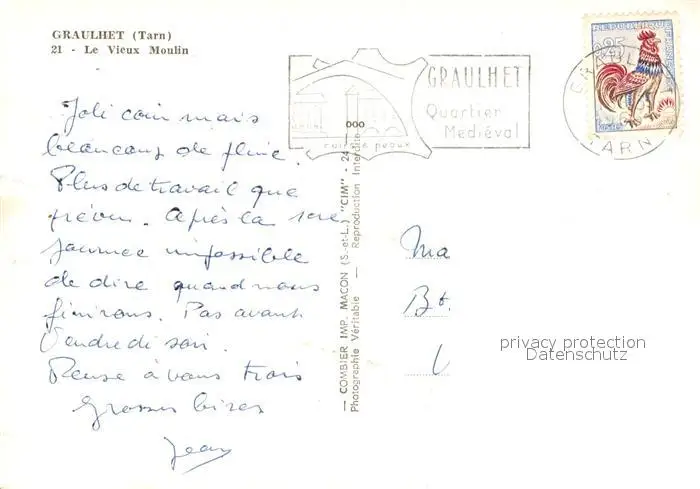 GRAULHET (Tarn)
21 - Le Vieux Moulin
GRAULHET
Quartier
Médiéval
cuirs & peaux
REPUBLIQUE FRANÇAISE
0,25
TARN
Joli coin mais
beaucoup de pluie.
Plus de travail que
prévu. Après la 1ère
journée impossible
de dire quand nous
finirons. Pas avant
Vendredi soir.
Pense à vous trois
Grosses bises
Jean
— COMBIER IMP. MACON (S.-et-L.) "CIM" -
Photographie Véritable — Reproduction Interdite
Ma
Bt.
privacy protection
Datenschutz